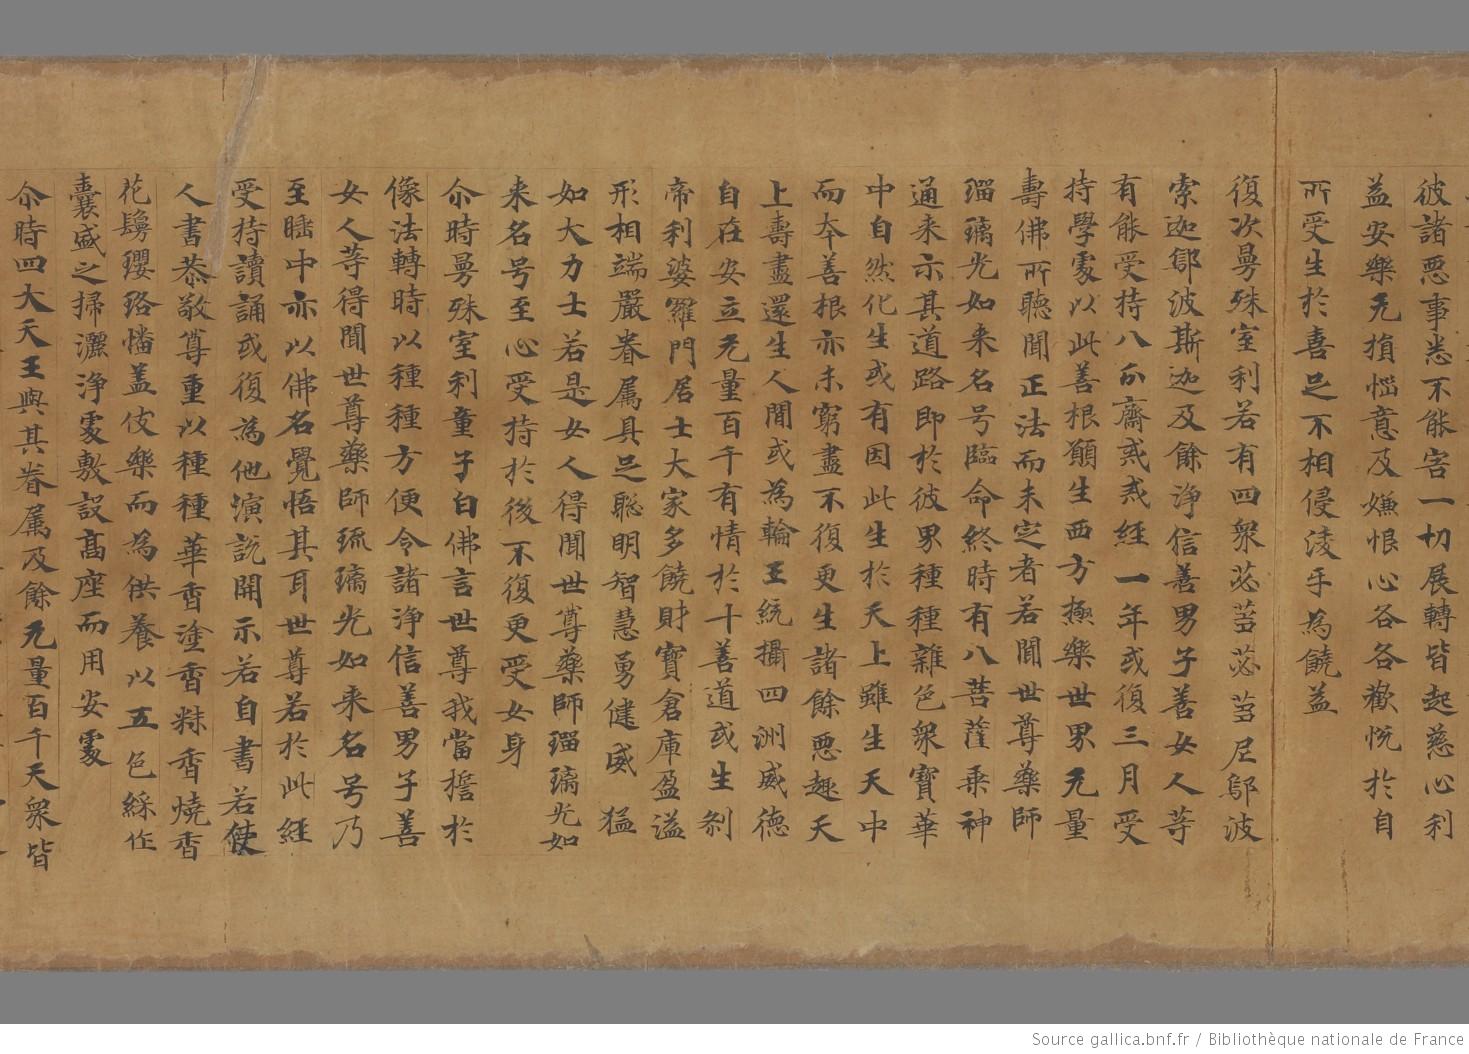 彼諸惡事悉不能害一切展轉皆起慈心利
益安樂无損惱意及嫌恨心各各歡悅於自
所受生於喜足不相侵淩乎為饒益
復次曼殊室利若有四衆苾芻苾芻尼鄔波
索迦鄔波斯迦及餘淨信善男子善女人等
有能受持八分齋戒或經一年或復三月受
持學處以此善根願生西方極樂世界无量
壽佛所聽聞正法而未定者若聞世尊藥師
瑠璃光如来名号臨命終時有八菩薩乗神
通来示其道路即於彼界種種雜色衆寶華
中自然化生或有因此生於天上雖生天中
而夲善根亦未窮盡不復更生諸餘惡趣天
上壽盡還生人間或為輪王統攝四洲威德
自在安立无量百千有情於十善道或生刹
帝利婆羅門居士大家多饒財寶倉庫盈溢
形相端嚴眷属具足聡明智慧勇健威猛
如大力士若是女人得聞世尊藥師瑠璃光如
来名号至心受持於後不復更受女身
尒時曼殊室利童子白佛言世尊我當擔於
像法轉時以種種方便令諸淨信善男子善
女人等得聞世尊藥師琉璃光如来名号乃
至睡中亦以佛名覺悟其耳世尊若於此經
受持讀誦或復為他演說開示若自書若使
人書恭敬尊重以種種華香塗香粖香燒香
花鬘瓔珞幡盖伎樂而為供養以五色綵作
囊盛之掃灑淨處敷設髙座而用安處
尒時四大天王與其眷属及餘无量百千天衆皆